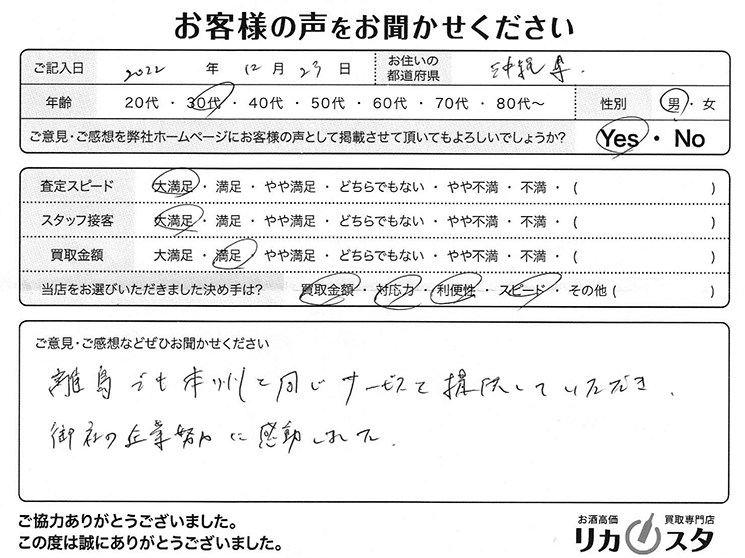 お客様の声をお聞かせください
ご記入日 2022 年 12 月 23 日 お住いの都道府県 沖縄県.
年齢 20代・30代・40代・50代・60代・70代・80代〜 性別 男・女
ご意見・ご感想を弊社ホームページにお客様の声として掲載させて頂いてもよろしいでしょうか? Yes・No
査定スピード 大満足・満足・やや満足・どちらでもない・やや不満・不満・( )
スタッフ接客 大満足・満足・やや満足・どちらでもない・やや不満・不満・( )
買取金額 大満足・満足・やや満足・どちらでもない・やや不満・不満・( )
当店をお選びいただきました決め手は? 買取金額・対応力・利便性・スピード・その他( )
ご意見・ご感想などぜひお聞かせください
離島でも本州と同じサービスを提供していただき、
御社の企業努力に感動しました.
ご協力ありがとうございました。
この度は誠にありがとうございました。
お酒高価 買取専門店
リカスタ